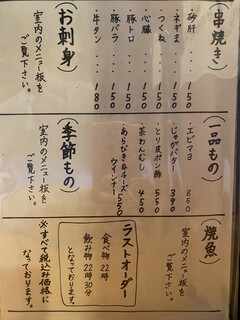 (串焼き)
・砂肝 150
・ネギま 150
・つくね 150
・心臓 150
・豚トロ 150
・豚バラ 150
・牛タン 180
(お刺身)
室内のメニュー板を
ご覧下さい。
(一品もの)
・エビマヨ 850
・じゃがバター 390
・とり皮ポン酢 550
・茶わんむし 450
・あらびき&チーズ
ウインナー 550
(季節もの)
室内のメニュー板を
ご覧下さい。
(焼魚)
室内のメニュー板を
ご覧下さい。
ラストオーダー
食べ物 22時
飲み物 22時30分
となっております。
※すべて税込み価格に
なっております。